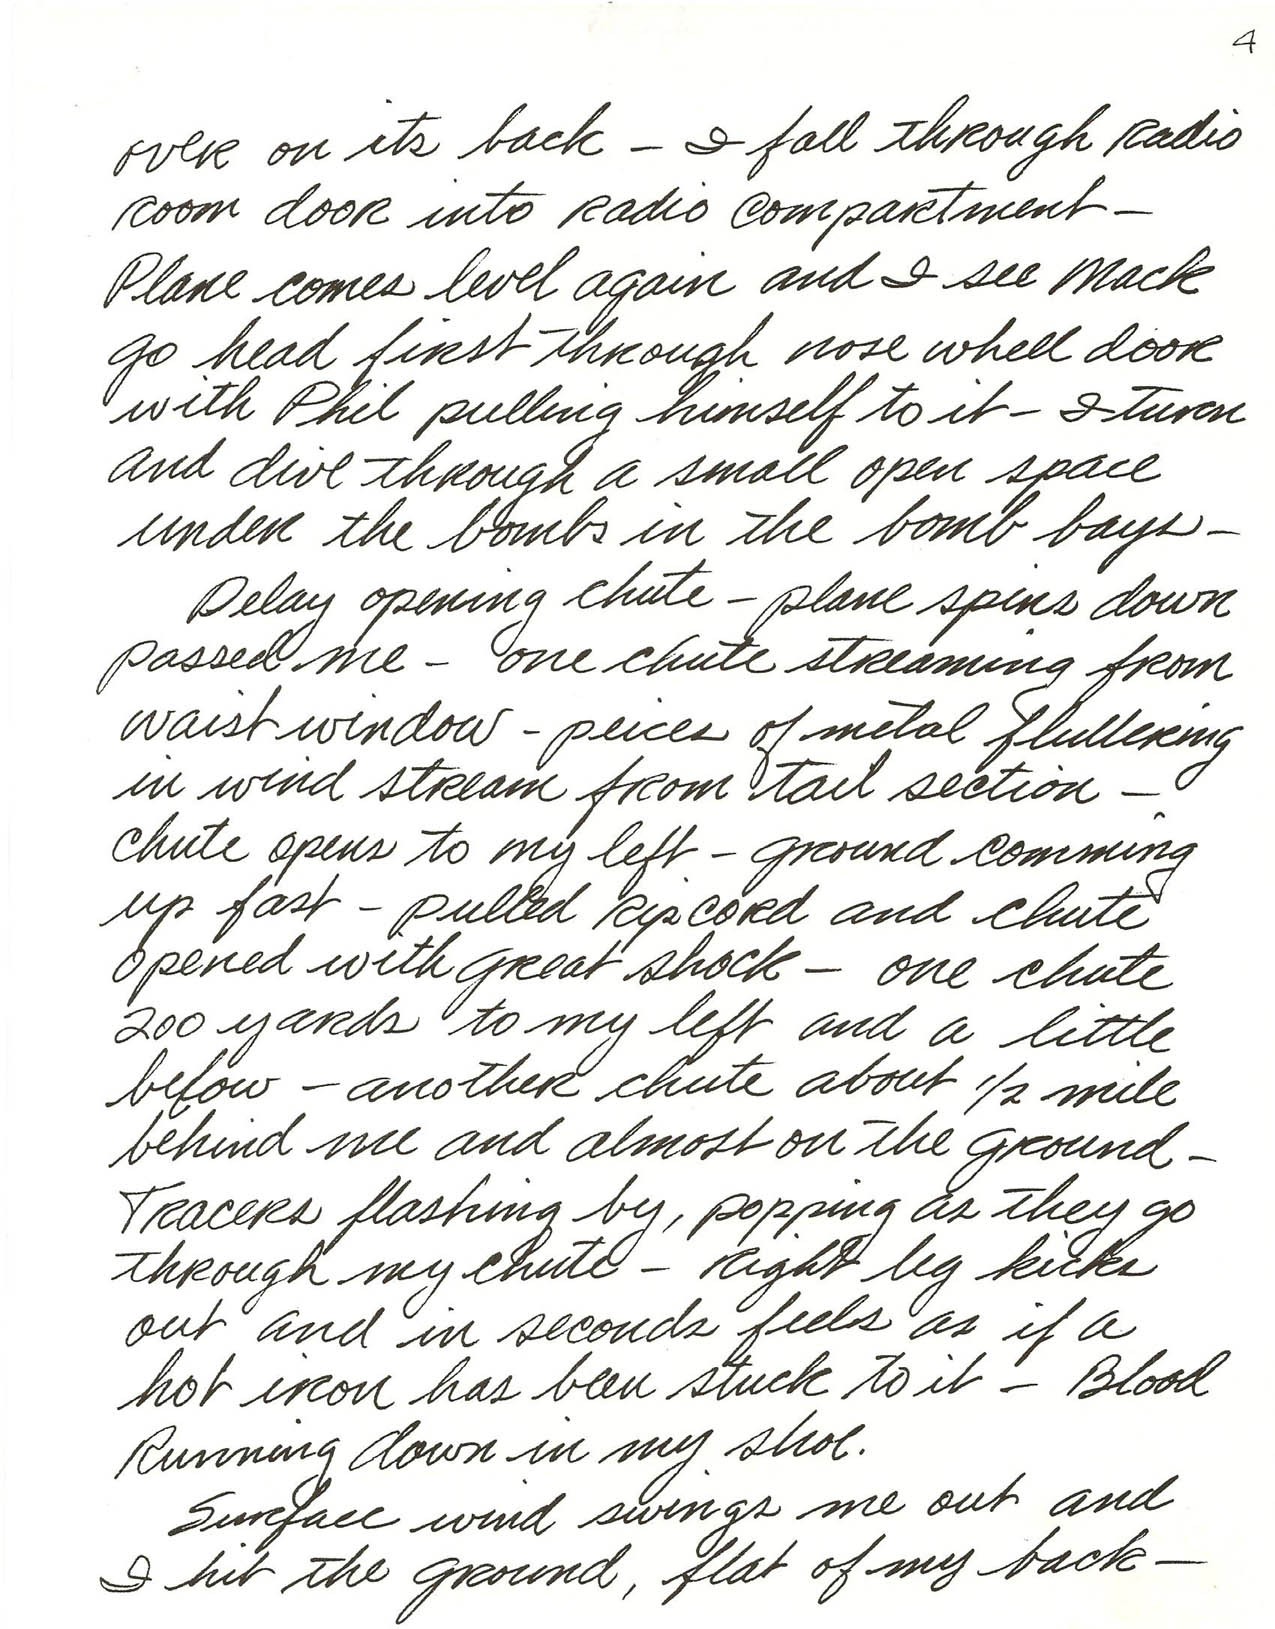 4
over on its back – I fall through Radio
Room door into Radio Compartment –
Plane comes level again and I see Mack
go head first through nose wheel door
with Phil pulling himself to it – I turn
and dive through a small open space
under the bombs in the bomb bays –
Delay opening chute – plane spins down
passed me – one chute streaming from
waist window – peices of metal fluttering
in wind stream from tail section –
chute opens to my left – ground comming
up fast – pulled ripcord and chute
opened with great shock – one chute
200 yards to my left and a little
below – another chute about 1/2 mile
behind me and almost on the ground –
Tracers flashing by, popping as they go
through my chute – Right leg kicks
out and in seconds feels as if a
hot iron has been stuck to it – Blood
Running down in my shoe.
Surface wind swings me out and
I hit the ground, flat of my back –